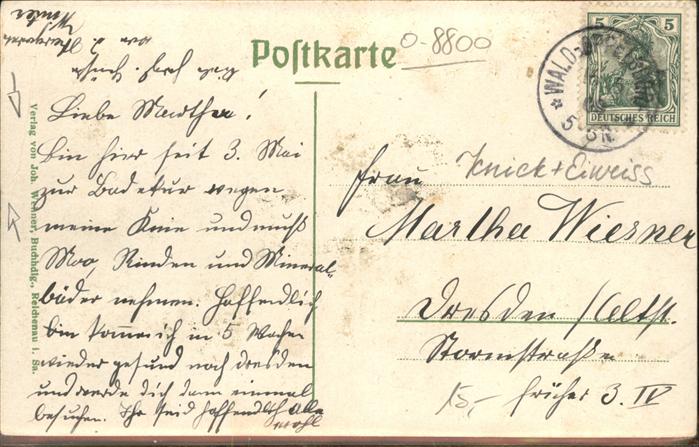 Postkarte
0-8800
5 5
DEUTSCHES REICH
Verlag von Joh. Weßner, Buchhdlg., Reichenau i. Sa.
Liebe Marthe!
bin hier seit 3. Mai
zur Badekur wegen
meine Knie und muß
Moo, Rinden und Mineral-
bäder nehmen. Hoffendlich
bin komme ich in 5 Wochen
wieder gesund nach Dresden
und werde dich dann einmal
besuchen. Ihr seid hoffendlich alle
wohl
Knick + Eiweiss
Frau
Martha Wiesner
Dresden / Altst.
Stormstraße
15,- früher 3. IV